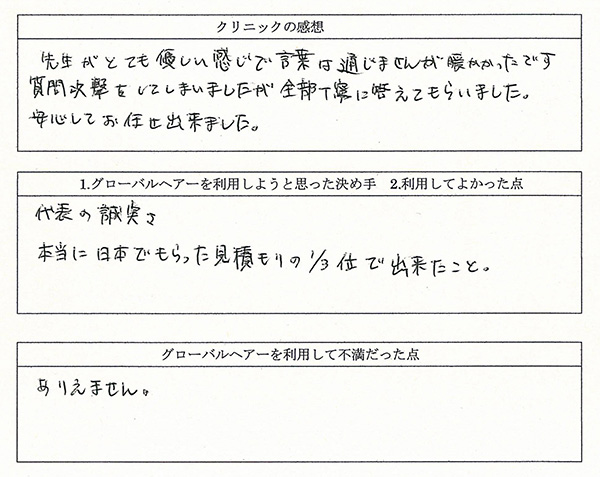 クリニックの感想
先生がとても優しい感じで言葉は通じませんが暖かかったです
質問攻撃をしてしまいましたが全部丁寧に答えてもらいました。
安心してお任せ出来ました。
1.グローバルヘアーを利用しようと思った決め手　2.利用してよかった点
代表の誠実さ
本当に日本でもらった見積もりの1/3位で出来たこと。
グローバルヘアーを利用して不満だった点
ありえません。